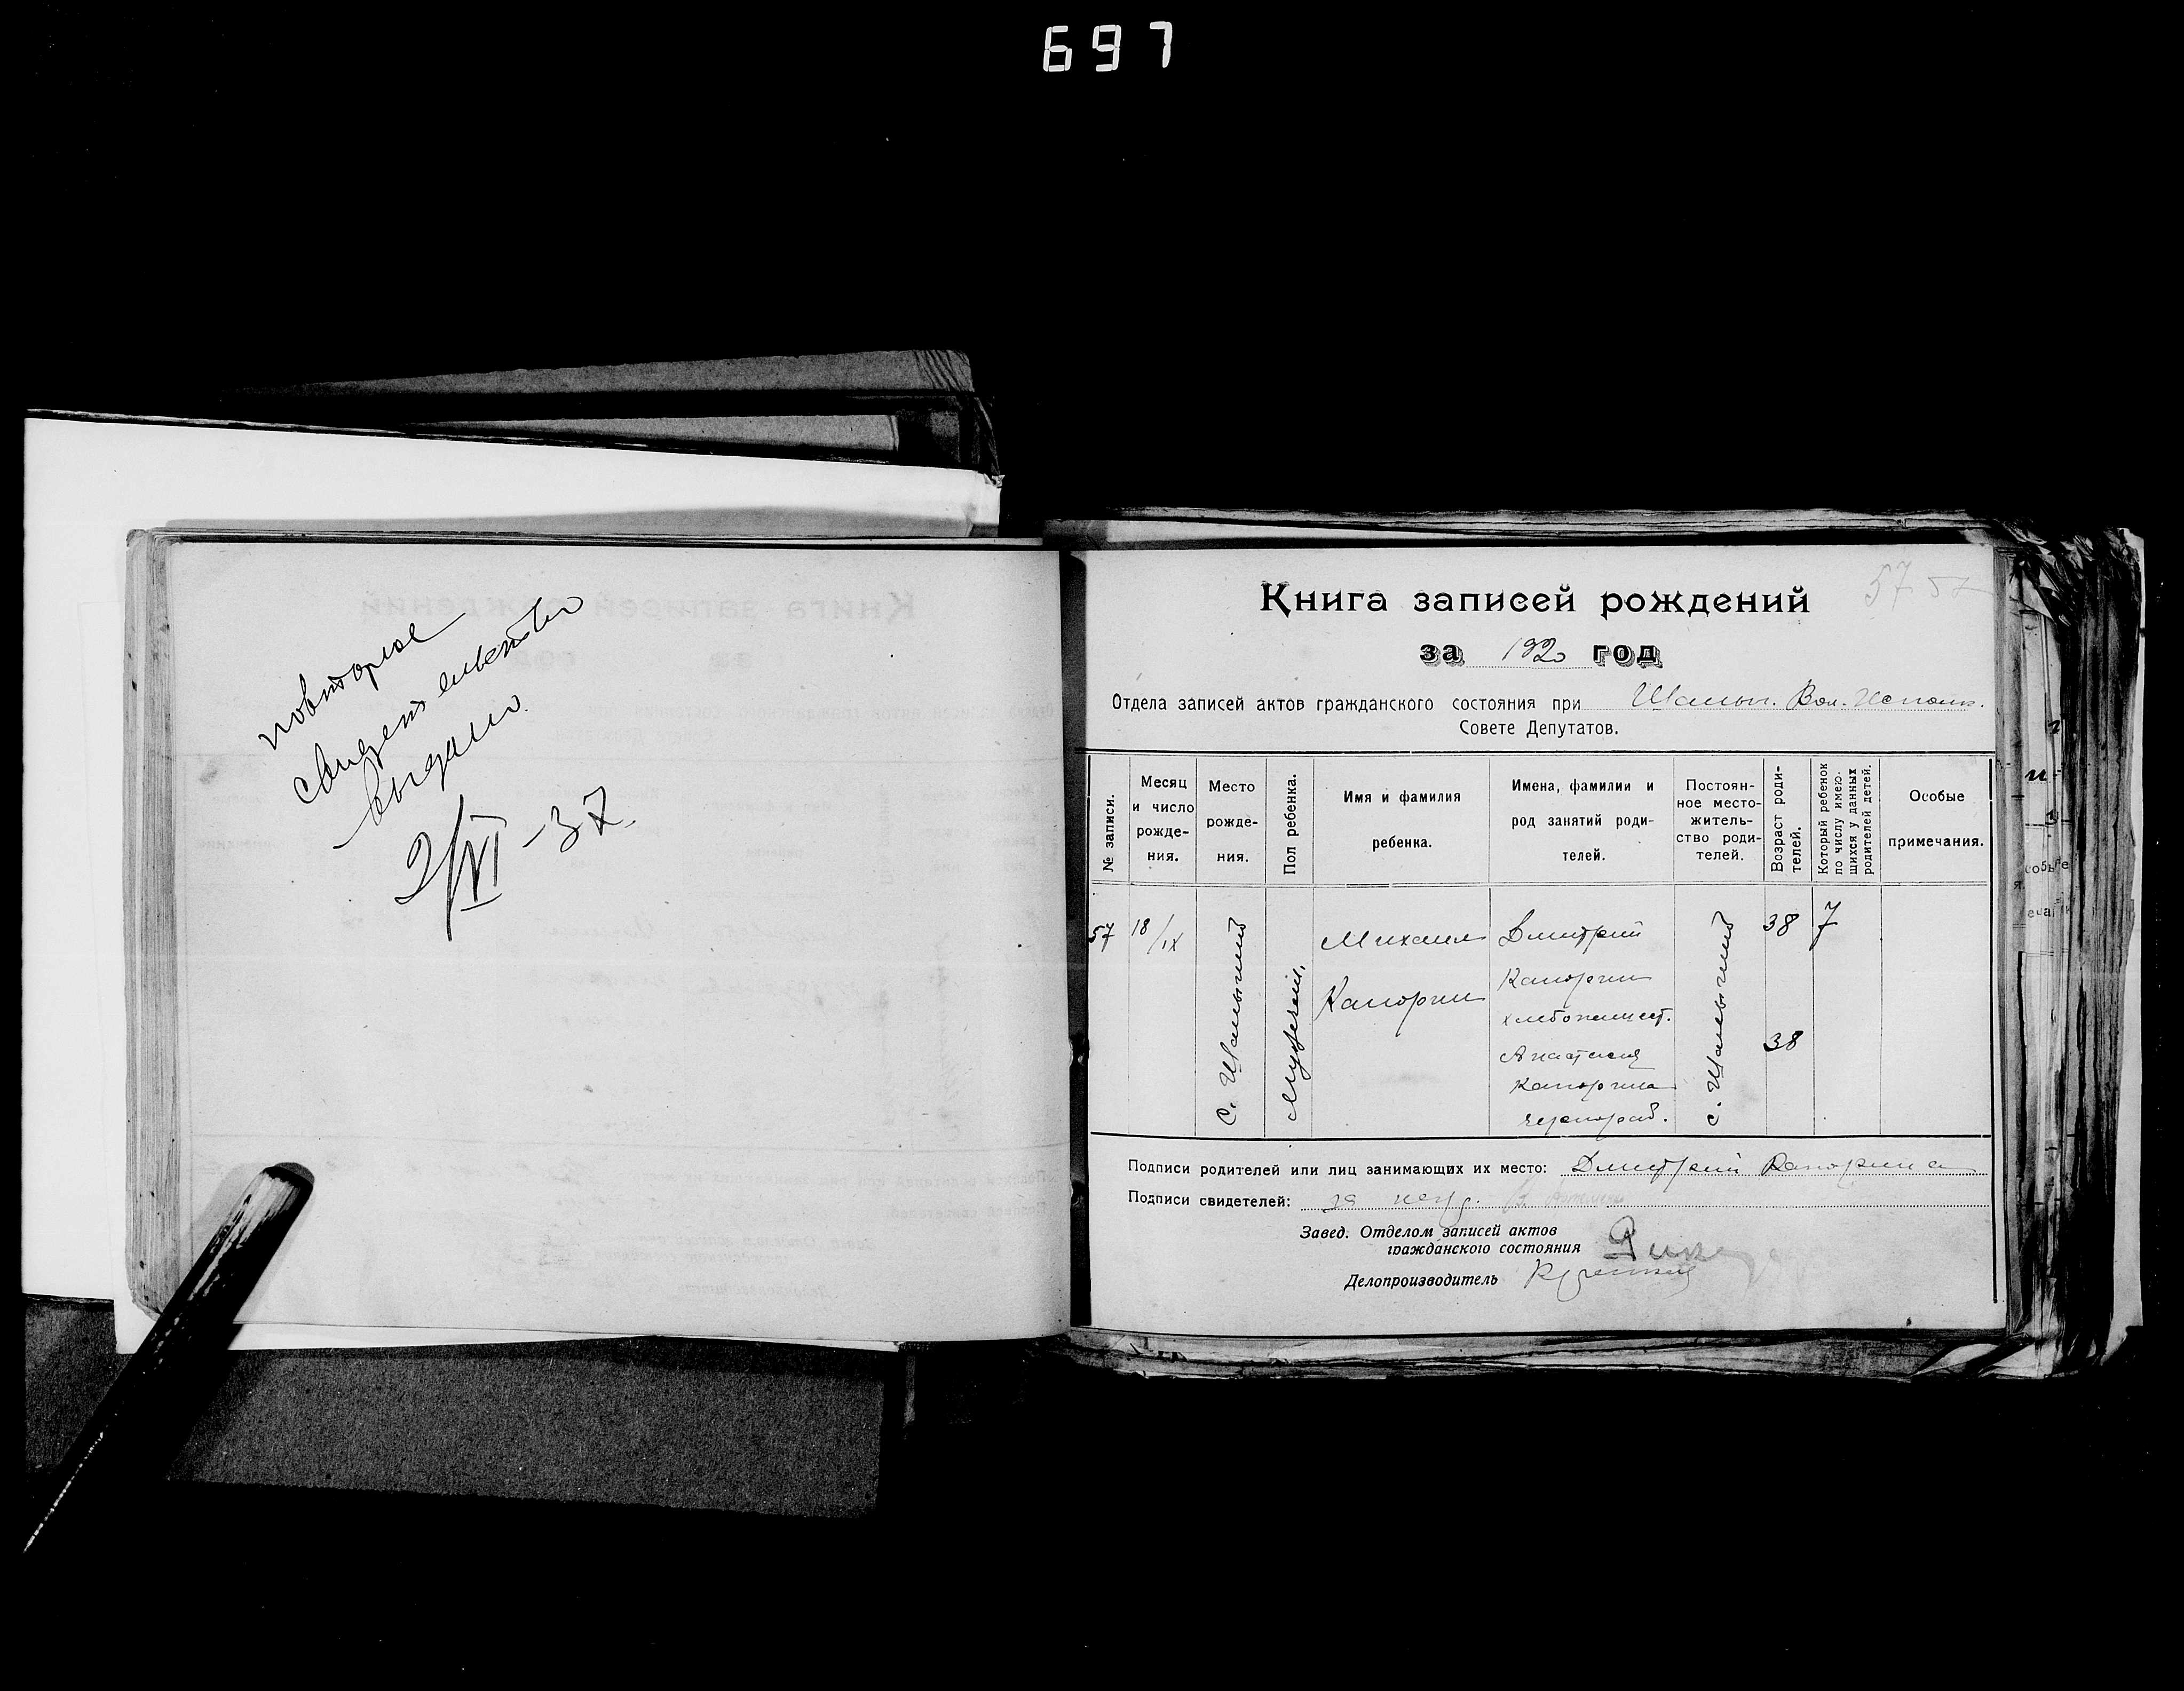 697
повторное
свидетельство
выдано.
2/VI-37.
57
Книга записей рождений
за 1920 год
Отдела записей актов гражданского состояния при Шалыг. Вол. Исполк.
Совете Депутатов.
№ записи.
Месяц и число рожде- ния.
Место рожде- ния.
Пол ребенка.
Имя и фамилия ребенка.
Имена, фамилии и род занятий роди- телей.
Постоян- ное место- житель- ство роди- телей.
Возраст роди- телей.
Который ребенок по числу имею- щихся у данных родителей детей.
Особые примечания.
57
18/IX
Мужской.
Михаил
Капорин
Дмитрий
Капорин
хлебопашест.
Анастасия
Капорина
чернораб.
38
38
7
Подписи родителей или лиц занимающих их место: Дмитрий Капорина
Подписи свидетелей: за негр.
Завед. Отделом записей актов
гражданского состояния
Делопроизводитель